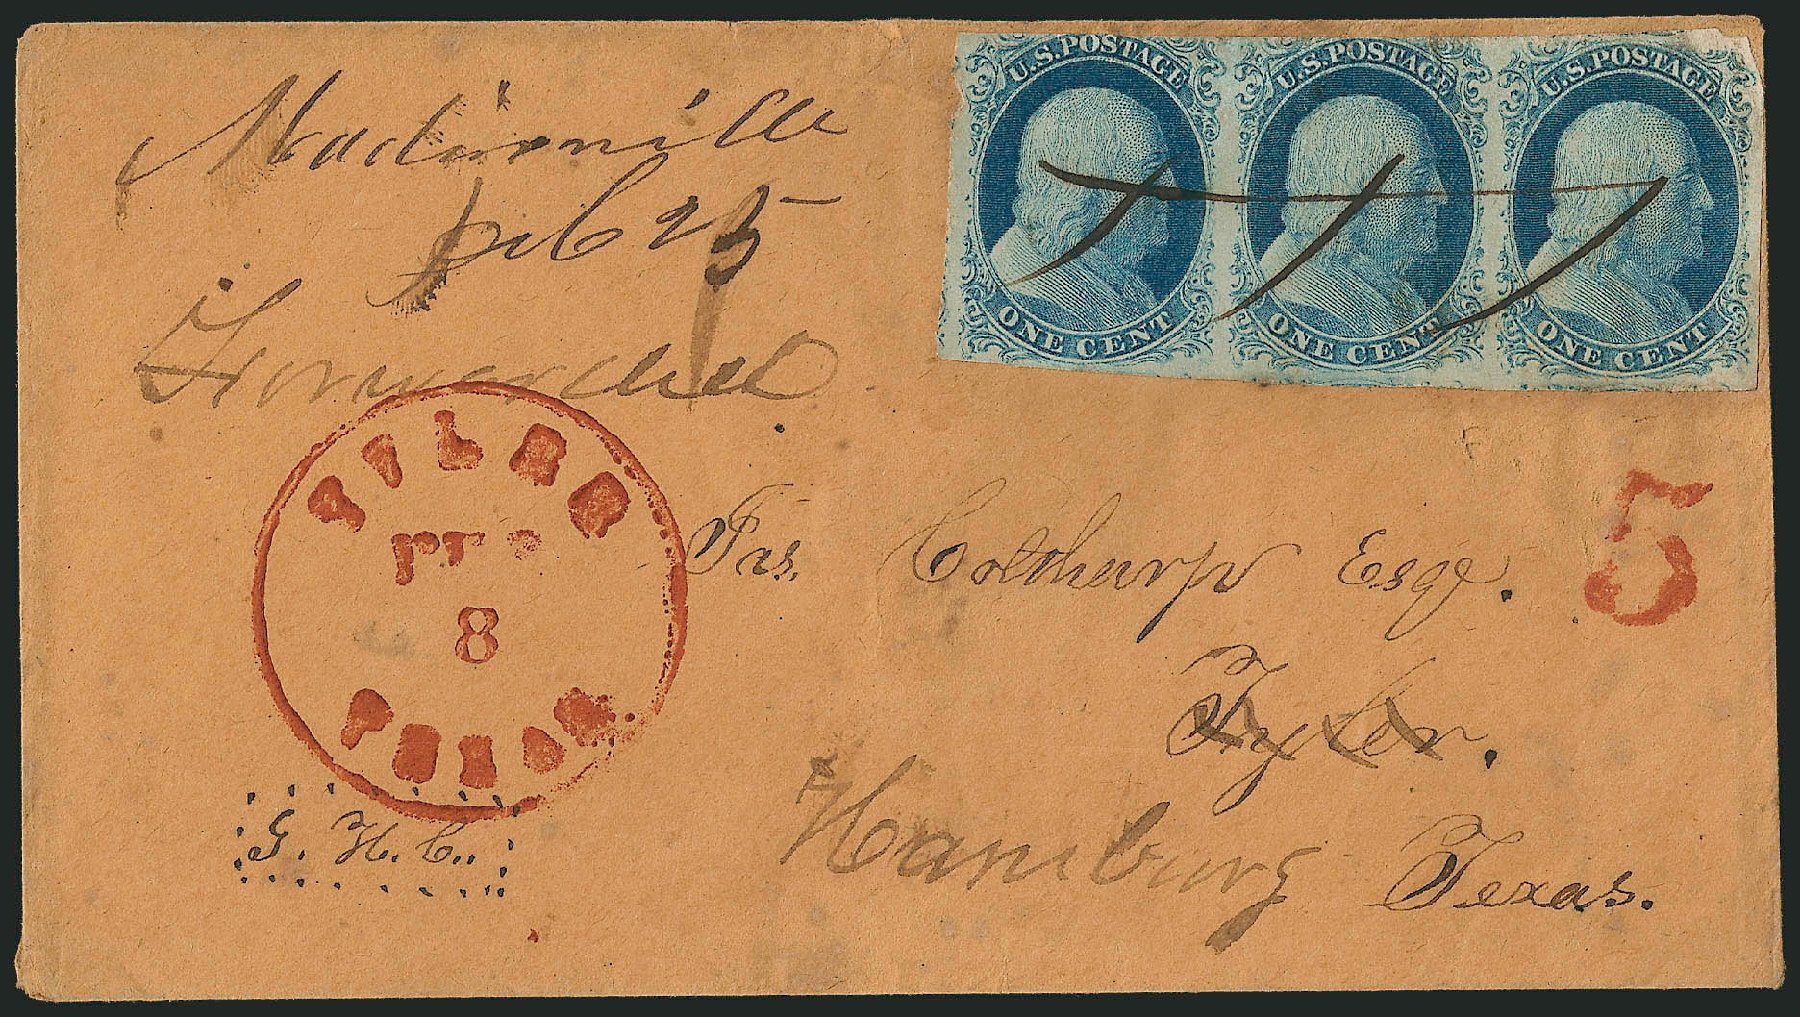 Madisonville
Feb 25
Forwarded
U.S. POSTAGE
ONE CENT
U.S. POSTAGE
ONE CENT
U.S. POSTAGE
ONE CENT
TYLER
8
TEXAS
5
Jas. Coltharp Esqr.
Tyler.
Hamburg Texas.
G. H. C.